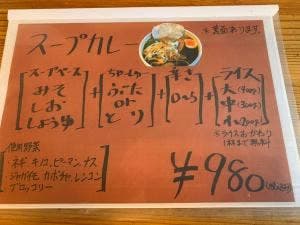 ※裏面あります。
スープカレー
スープベース
みそ
しお
しょうゆ
+
ちゃーしゅー
ぶた
or
とり
+
辛さ
0~5
+
ライス
大(400g)
中(300g)
小(200g)
※ライスおかわり
1杯まで無料
使用野菜
・ネギ キノコ、ピーマン、ナス
ジャガイモ カボチャ、レンコン
ブロッコリー
¥980(税込)